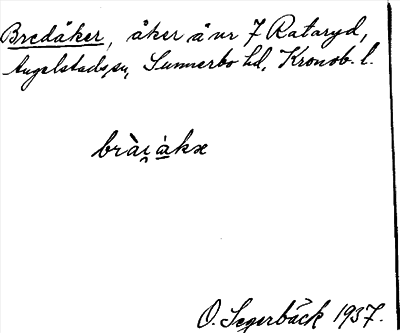 Bredåker, åker å nr 7 Rataryd,
Angelstads sn, Sunnerbo hd, Kronob. l.
brài̯ åkæ
O. Segerbäck 1937.